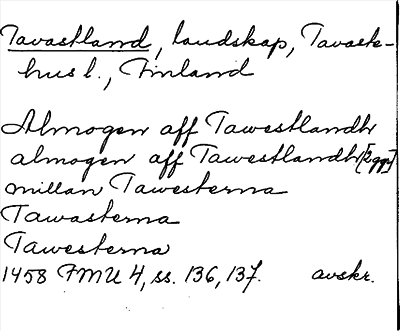 Tavastland, landskap, Tavaste-
hus l., Finland
Almogen aff Tawestlandh
almogen aff Tawestlandh [2 ggr]
millan Tawesterna
Tawasterna
Tawesterna
1458 FMU 4, ss. 136, 137. avskr.